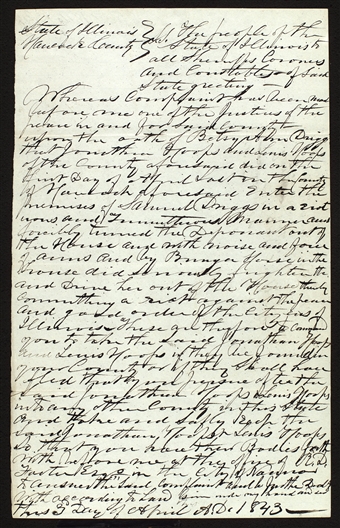 State of Illinois } The people of the
Hancock County } State of Illinois to
all Sheriffs Coroners
and Constables of Said
State greeting
Whereas Complaint has been made
before me one of the Justices of the
peace in and for Said County
upon the oath of Betsy Ann Driggs
that Jonathan Hoops and Lewis Hoops
of the County aforesaid did on the
first Day of April last in the County
of Hancock aforesaid Enter the
premises of Samuel Driggs in a riot
ious and Tumultuous Manner and
forcibly turned the Deponant out of
the House and with noise and force
of arms and by Bringing force in the
House did Seriously frighten the
and Drive her out of the House thereby
Committing a riot against the peace
and good order of the Citizens of
Illinois These are therefore to Command
you to take the said Jonathan Hoops
and Lewis Hoops if they be found in
your County or if they shall have
fled that you pursue after the
said Jonathan Hoops Lewis Hoops
into any other County within this State
and take and safely Keep the
said Jonathan Hoops Lewis Hoops
so that you have their Bodies forth
with before me at the office of
Foster Esqr in the City of Nauvoo
to answer the said Complaint and be further Dealt
with according to Law given under my hand and seal
this 3 Day of April A.D. 1843